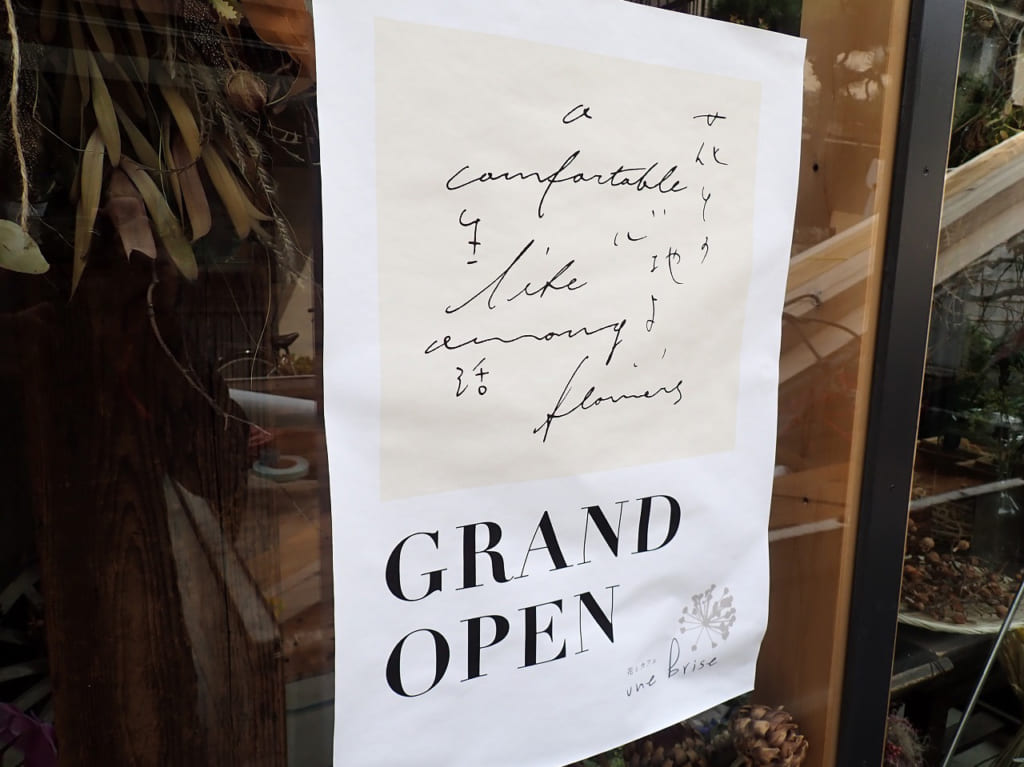 a
comfortable
like
among
flowers
GRAND
OPEN
花とカフェ
une Brise